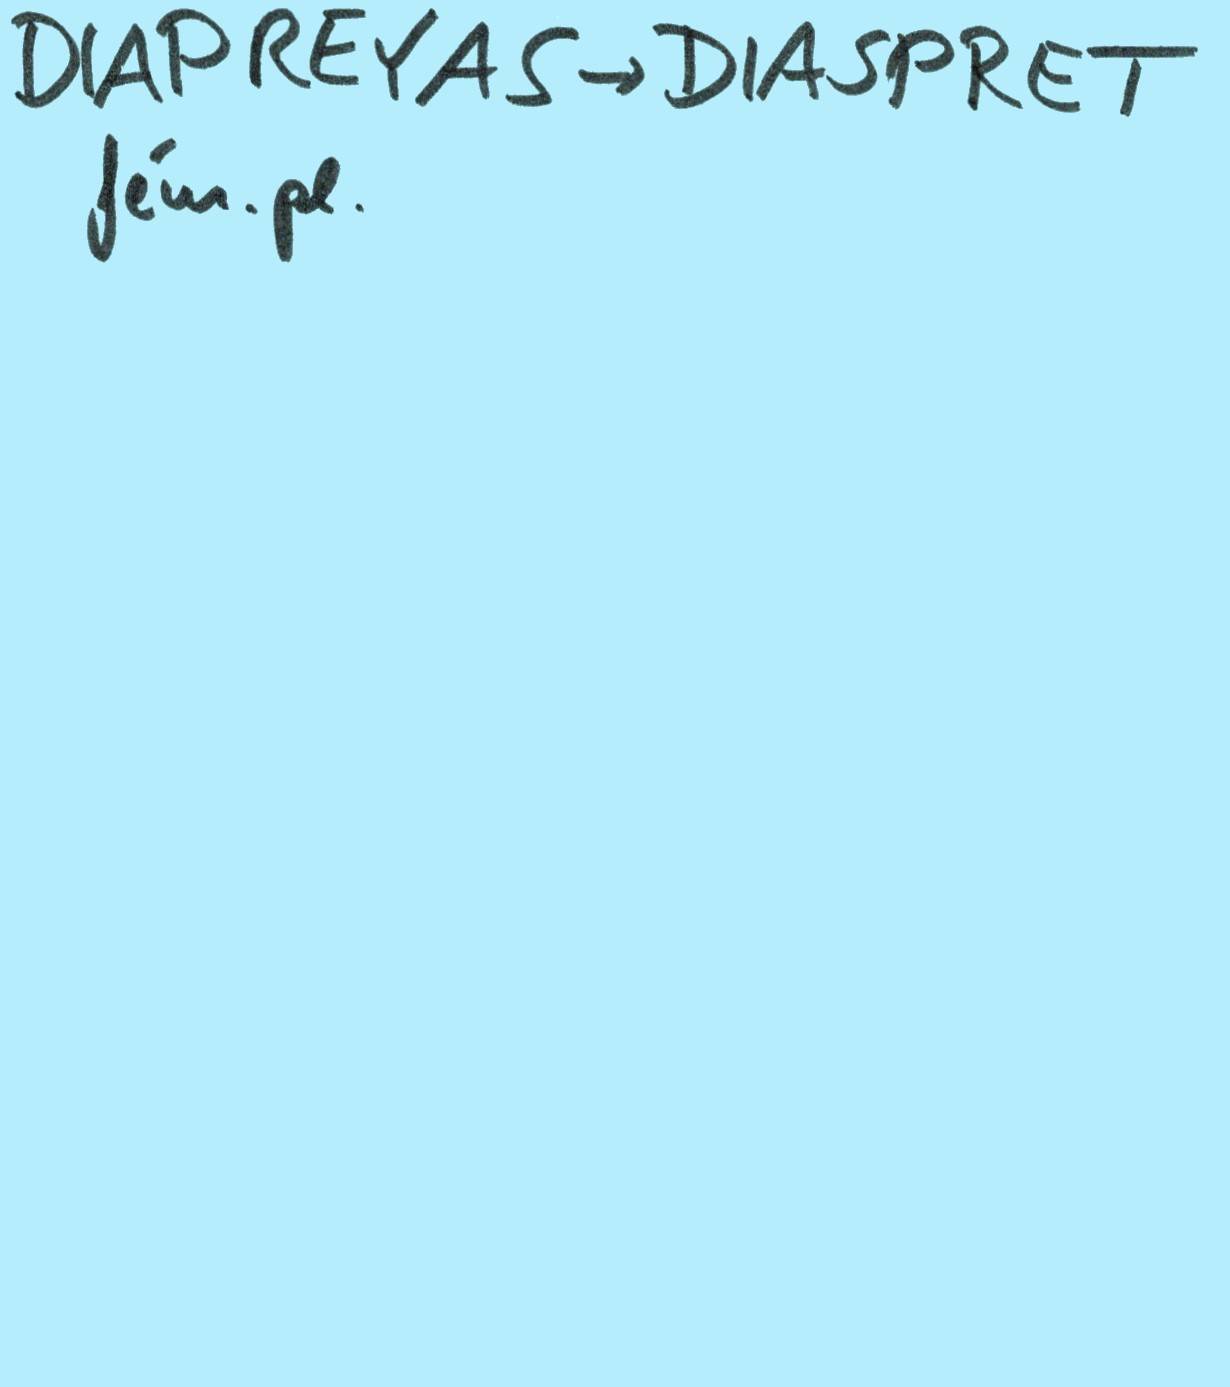 DIAPREYAS → DIASPRET
fém. pl.